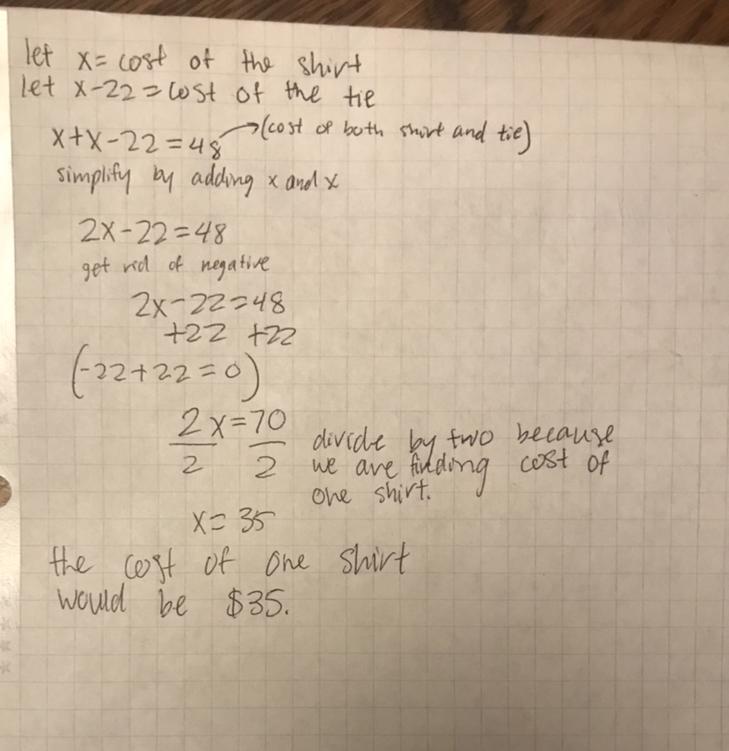 let x = cost of the shirt
let x-22 = cost of the tie
x+x-22=48 → (cost of both shirt and tie)
simplify by adding x and x
2x-22=48
get rid of negative
2x-22=48
+22 +22
(-22+22=0)
2x=70 divide by two because
2 2 we are finding cost of
one shirt.
x=35
the cost of one shirt
would be $35.